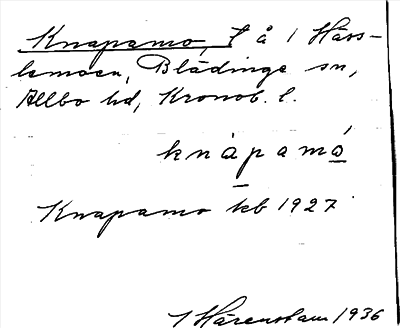 Knapamo, l å 1 Häss-
lemoen, Blädinge sn,
Allbo hd, Kronob. l.
knapamo
Knapamo kb 1927
Härenstam 1936